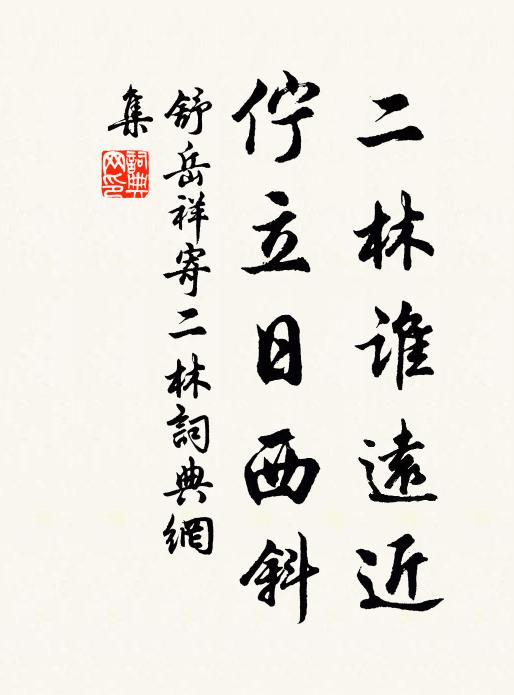 二林誰遠近
佇立日西斜
舒岳祥寄二林詞典網
集
詞典网印